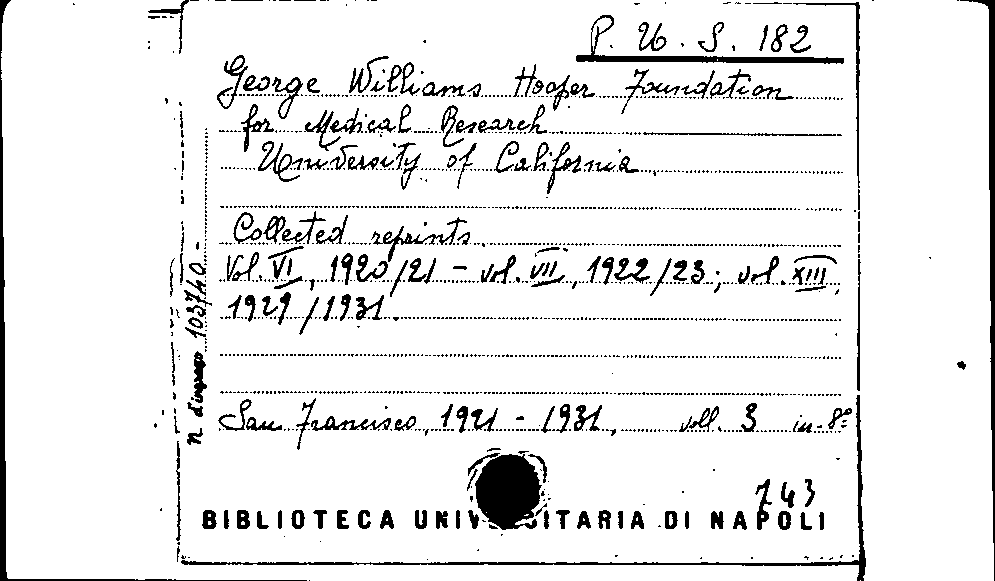 P. U. S. 182
George Williams Hooper Foundation
for Medical Research
University of California.
Collected reprints.
Vol. VI, 1920/21 - vol. VII, 1922/23; vol. XIII,
1929/1931.
San Francisco, 1921 - 1931, voll. 3 in-8°
n. d'ingresso 103740 -
743
BIBLIOTECA UNIVERSITARIA DI NAPOLI